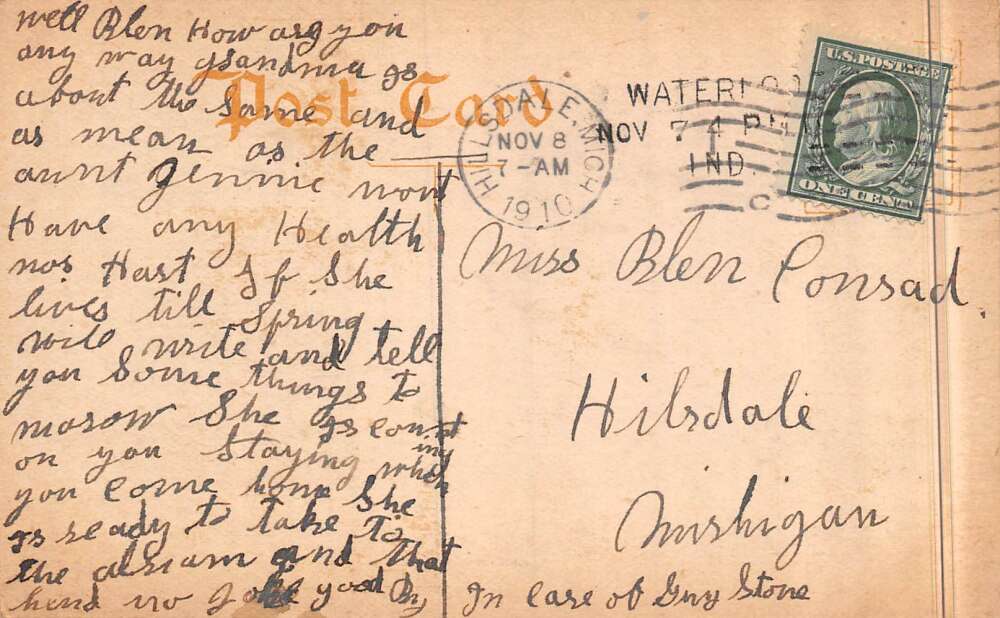 well Blen How are you
any way grandma is
about the same and
as mean as the
aunt Jennie wont
Have any Health
nor Hast If She
lives till Spring
will write and tell
you Some things to
morow She is count
ing
on you Staying when
you Come home She
is ready to take to
the and that
no Joke good By
Post Card
HILLSDALE, MICH
NOV 8
7-AM
1910
WATERLOO
NOV 7 4 PM
IND.
U.S. POSTAGE
ONE CENT
Miss Blen Conrad
Hilsdale
Mishigan
In Care of Guy Stone